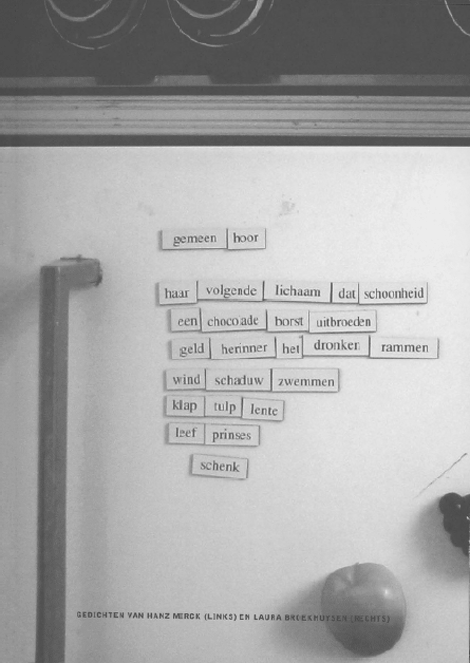 gemeen hoor
haar volgende lichaam dat schoonheid
een chocolade borst uitbroeden
geld herinner het dronken rammen
wind schaduw zwemmen
klap tulp lente
leef prinses
schenk
GEDICHTEN VAN HANZ MERCK (LINKS) EN LAURA BROEKHUYSEN (RECHTS)